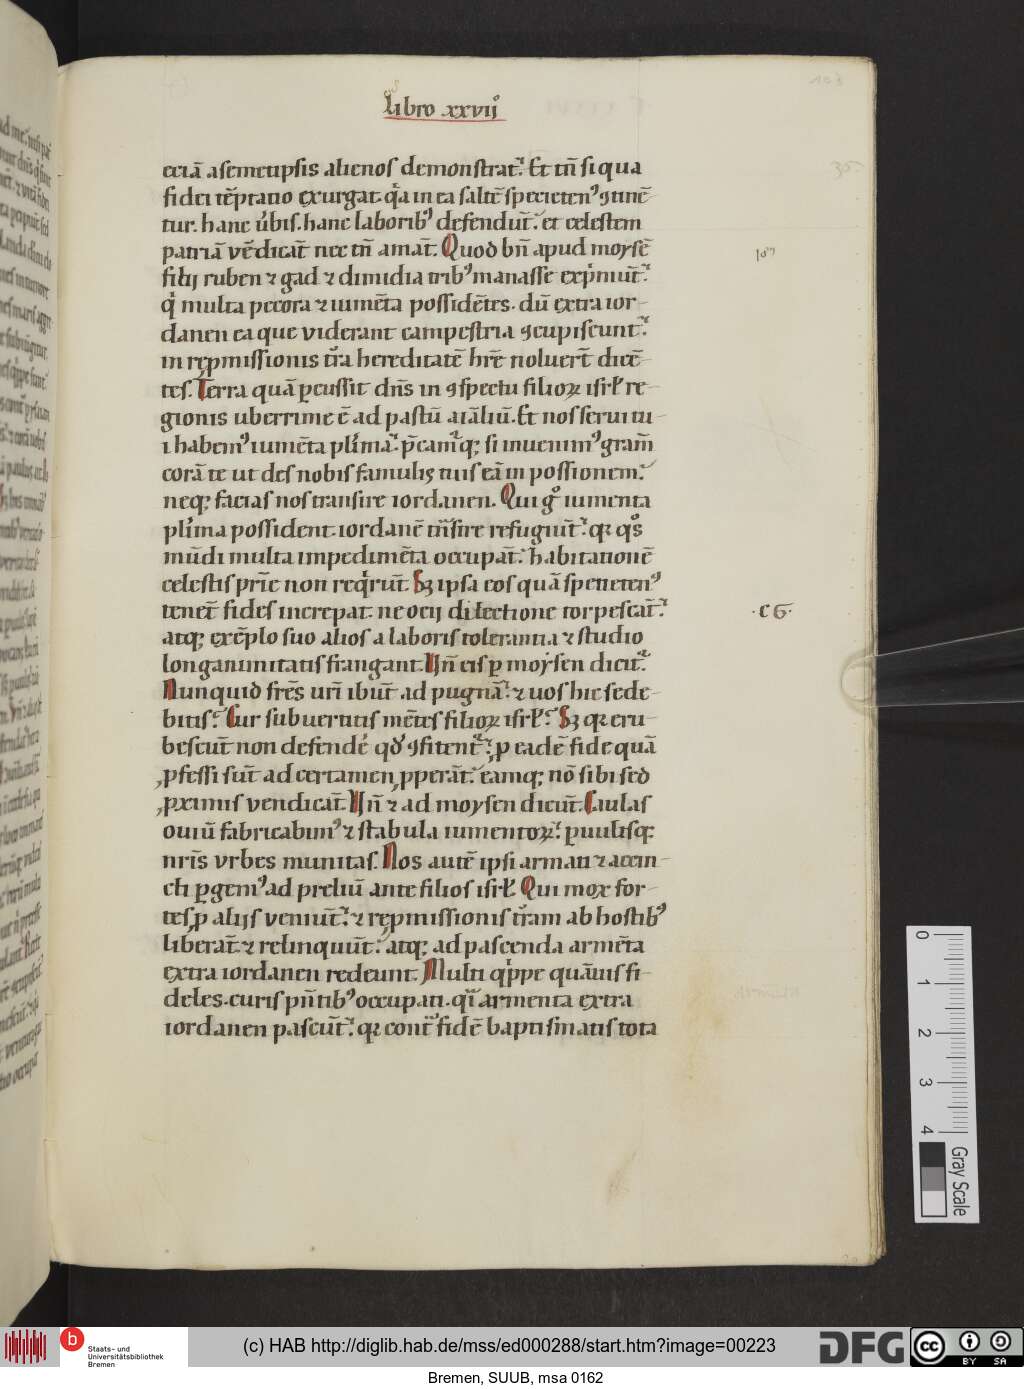 Libro xxvijͦ
103
35
eciā a semetipsis alienos demonstrat. Et tn̄ si qua
fidei tēptatio exurgat. q̍a in ea saltē specietenꝰ ꝯtinē-
tur. hanc u̍bis. hanc laboribꝰ defendūt. et celestem
patriā vēdicāt nec tn̄ amāt. Quod bn̄ apud moysē
filij ruben ⁊ gad ⁊ dimidia tribꝰ manasse exp̍mūt.
q̍ multa pecora ⁊ iumēta possidētes. dū extra ior-
danen ea que viderant campestria ꝯcupiscunt.
in repmissionis tr̄a hereditatē hr̄e noluer̄t dicē-
tes. Terra quā ꝑcussit dn̄s in ꝯspectu filioꝝ isrł re-
gionis uberrime ē ad pastū aīaliū. Et nos serui tu-
i habemꝰ iumēta pl̍ima. p̄cam̍qꝫ si inuenimꝰ gram̄
corā te ut des nobis famulis tuis eā in possionem.
neqꝫ facias nos transire iordanen. Qui gͦ iumenta
pl̍ima possident. iordanē tn̄sire refugiūt. qꝛ qͦs
mūdi multa impedimēta occupāt. habitationē
celestis pr̄ie non req̍rūt. Sꝫ ipsa eos quā spenetenꝰ
tenet fides increpat. ne ocij dilectione torpescāt.
· C G ·
atqꝫ exēplo suo alios a laboris tolerantia ⁊ studio
longanimitatis frangant. Vn̄ eis ꝑ moysen dicit̍.
Nunquid fr̄es ur̄i ibūt ad pugnā. ⁊ uos hic sede-
bitis. Cur subuertitis mētes filioꝝ isrł. Sꝫ qꝛ eru-
bescūt non defendē qđ ꝯfitent̍. ꝓ eadē fide quā
ꝓfessi sūt ad certamen ꝓperāt. eamqꝫ nō sibi sed
ꝓximis vendicāt. Vn̄ ⁊ ad moysen dicūt. Caulas
ouiū fabricabimꝰ ⁊ stabula iumentoꝝ. ꝑuulisqꝫ
nr̄is vrbes munitas. Nos autē ipsi armati ⁊ accin-
cti ꝑgemꝰ ad preliū ante filios isrł. Qui mox for-
tes ꝓ alijs veniūt. ⁊ repmissionis tr̄am ab hostibꝰ
liberāt. ⁊ relinquūt. atqꝫ ad pascenda armēta
extra iordanen redeunt. Multi q̍ppe quāuis fi-
deles. curis pn̄tibꝰ occupati. q̍ī armenta extra
iordanen pascūt. qꝛ cont̄ fidē baptismatis tota
0
1
2
3
4
Gray Scale
b
Staats- und
Universitätsbibliothek
Bremen
(c) HAB http://diglib.hab.de/mss/ed000288/start.htm?image=00223
DFG
cc
BY SA
Bremen, SUUB, msa 0162